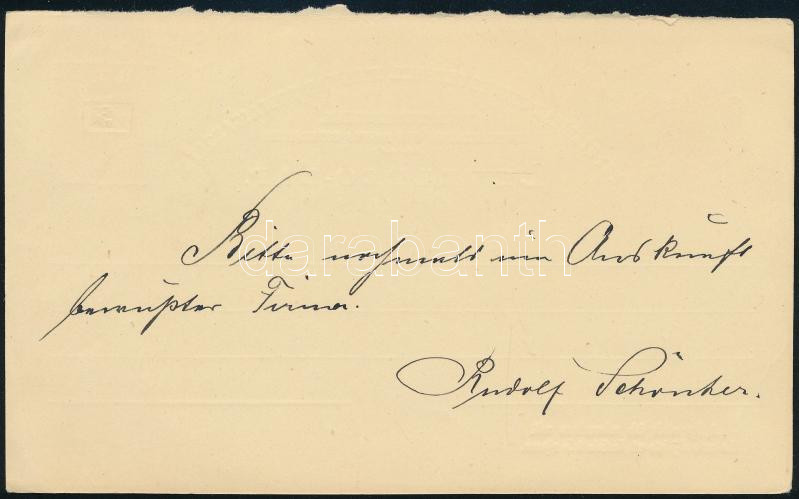 Bitte nochmals um Auskunft
bewußter Firma.
Rudolf Schönher.
darabanth